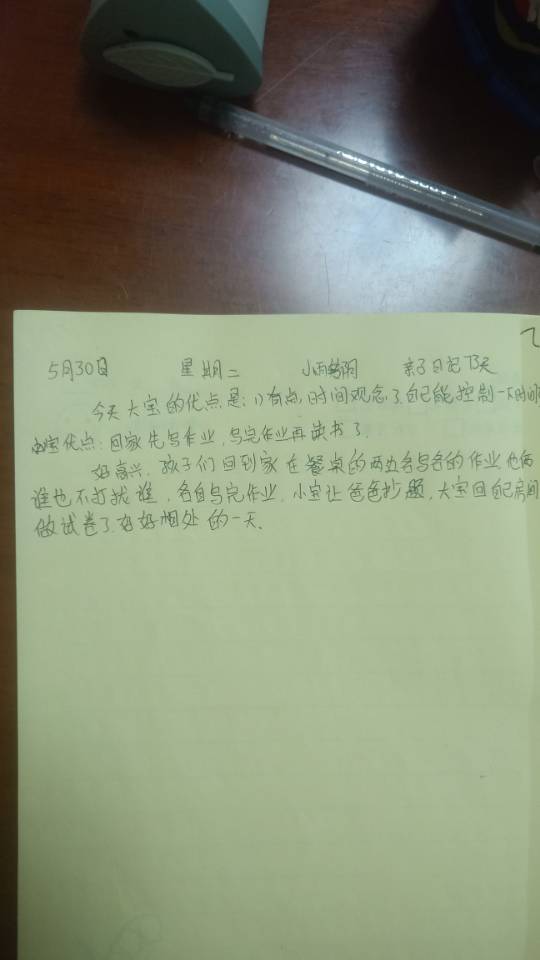 5月30日 星期二 小雨转阴 亲子日记73天
今天大宝的优点是:1)有点时间观念了自己能控制一下时间
小宝优点:回家先写作业,写完作业再读书了.
好高兴.孩子们回到家在餐桌的两边各写各的作业他俩
谁也不打扰谁,各自写完作业.小宝让爸爸抄题,大宝回自己房间
做试卷了.好好相处的一天.